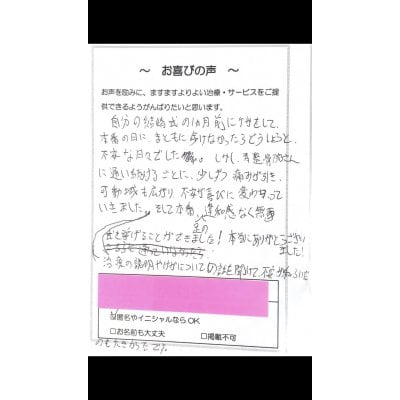 ～ お喜びの声 ～
お声を励みに、ますますよりよい治療・サービスをご提
供できるようがんばりたいと思います。
自分の結婚式の1カ月前にケガをして、
本番の日に、まともに歩けなかったらどうしようと、
不安な日々でした。しかし、整骨院さん
に通い続けるごとに、少しずつ痛みが引き、
可動域も広がり 不安が喜びに変わって
いきました。そして本番、足の違和感なく無事
式を挙げることができました! 本当にありがとうござい
ました!
治療の説明やけがについての話を聞けて、不安が
のも大きかったです。
☑匿名やイニシャルならOK
□お名前も大丈夫 □掲載不可